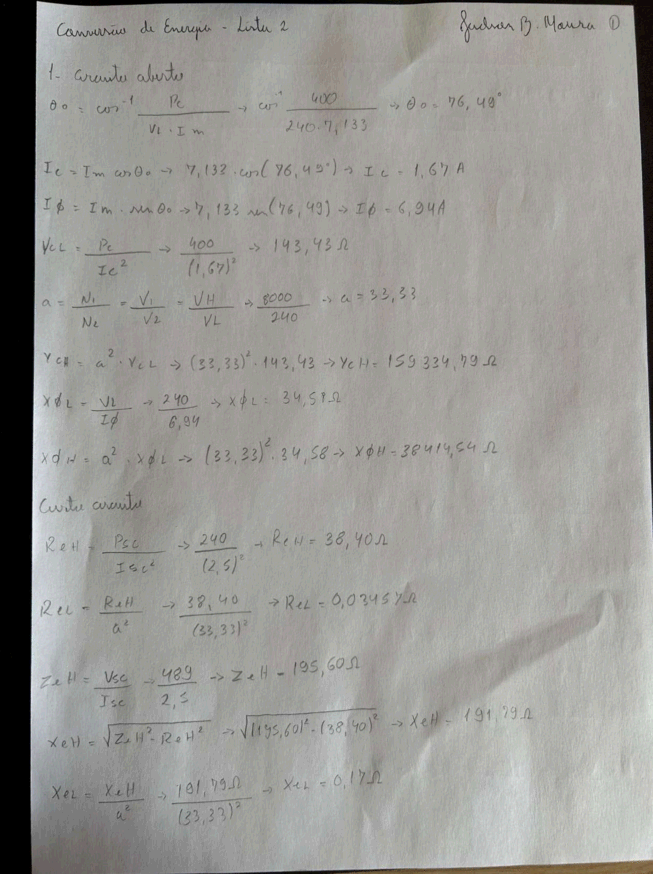 Conversão de Energia - Lista 2 B. Moura ①
1- Circuito aberto
θo = cos⁻¹ Pc / VL · Im → cos⁻¹ 400 / 240·7,133 → θo = 76,49°
Ic = Im cosθo → 7,133 · cos(76,49°) → Ic = 1,67 A
Iϕ = Im · senθo → 7,133 sen(76,49) → Iϕ = 6,94A
rcL = Pc / Ic² → 400 / (1,67)² → 143,43 Ω
a = N1 / N2 = V1 / V2 = VH / VL → 8000 / 240 → a = 33,33
rcH = a² · rcL → (33,33)² · 143,43 → rcH = 159334,79 Ω
XϕL = VL / Iϕ → 240 / 6,94 → XϕL = 34,58Ω
XϕH = a² · XϕL → (33,33)² · 34,58 → XϕH = 38414,54 Ω
Curto circuito
ReH = Psc / Isc² → 240 / (2,5)² → ReH = 38,40Ω
ReL = ReH / a² → 38,40 / (33,33)² → ReL = 0,03457Ω
ZeH = Vsc / Isc → 489 / 2,5 → ZeH = 195,60Ω
XeH = √ZeH² - ReH² → √(195,60)² - (38,40)² → XeH = 191,79Ω
XeL = XeH / a² → 191,79Ω / (33,33)² → XeL = 0,17Ω